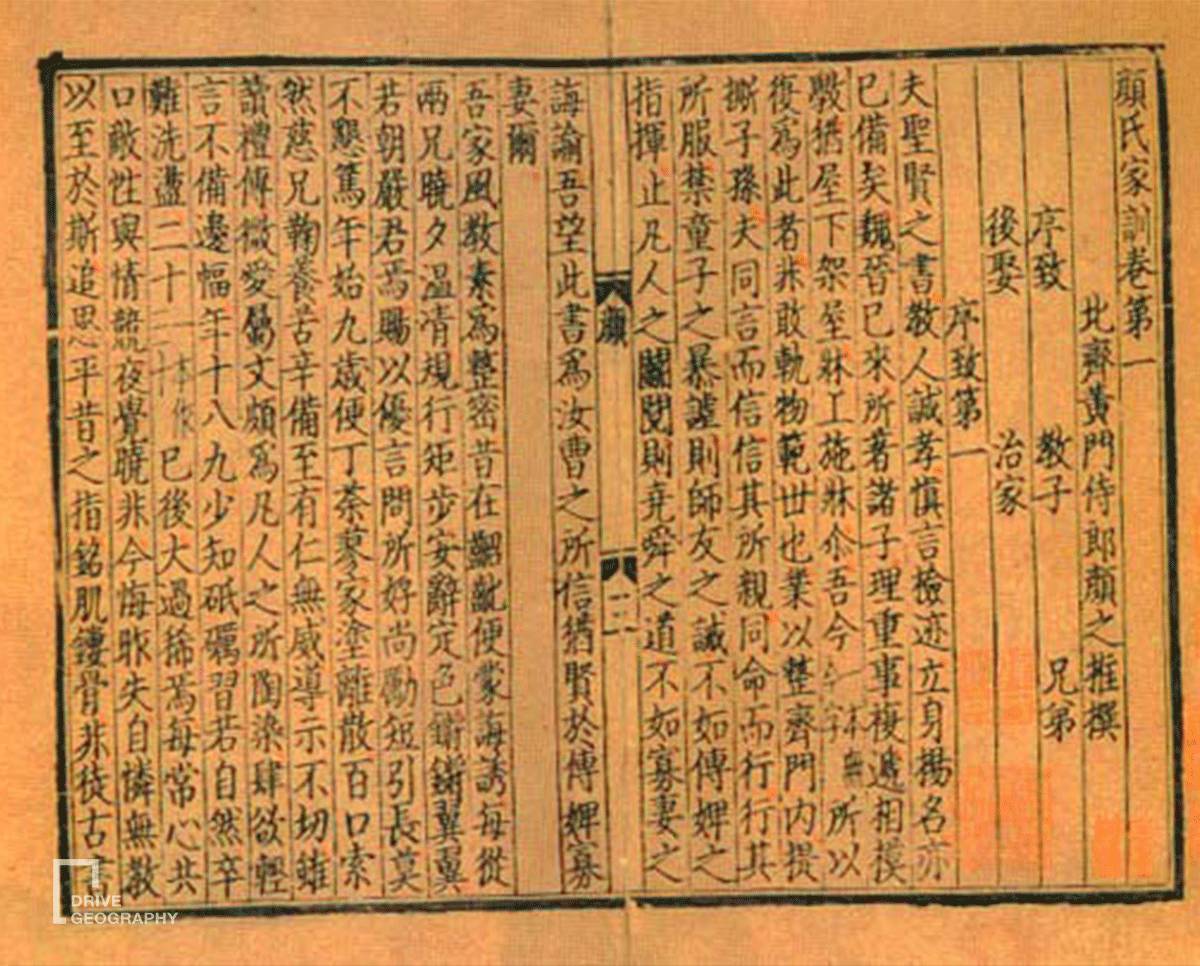 顏氏家訓卷第一
北齊黃門侍郎顏之推撰
序致 教子 兄弟
後娶 治家
序致第一
夫聖賢之書教人誠孝慎言檢迹立身揚名亦
已備矣魏晉已來所著諸子理重事複遞相模
斆猶屋下架屋牀上施牀尒吾今所以
復爲此者非敢軌物範世也業以整齊門內提
撕子孫夫同言而信信其所親同命而行行其
所服禁童子之暴謔則師友之誡不如傅婢之
指揮止凡人之鬭鬩則堯舜之道不如寡妻之
顏
誨諭吾望此書爲汝曹之所信猶賢於傅婢寡
妻爾
吾家風教素爲整密昔在齠齔便蒙誨誘每從
兩兄曉夕溫凊規行矩步安辭定色鏘鏘翼翼
若朝嚴君焉賜以優言問所好尚勵短引長莫
不懇篤年始九歲便丁荼蓼家塗離散百口索
然慈兄鞠養苦辛備至有仁無威導示不切雖
讀禮傳微愛屬文頗爲凡人之所陶染肆欲輕
言不備邊幅年十八九少知砥礪習若自然卒
難洗盪二十已後大過稀焉每常心共
口敵性與情競夜覺曉非今悔昨失自憐無教
以至於斯追思平昔之指銘肌鏤骨非徒古書
DRIVE
GEOGRAPHY